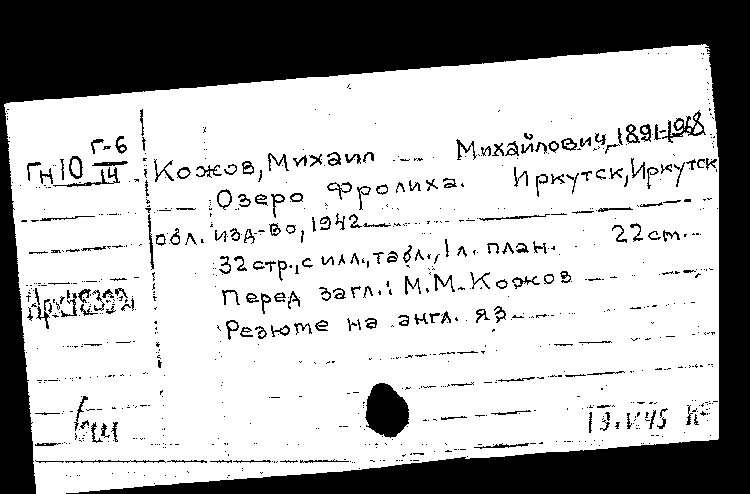 Гн10 Г-6/14
Кожов, Михаил Михайлович, 1891-1968
Озеро Фролиха. Иркутск, Иркутск
обл. изд-во, 1942
32 стр., с илл., табл., 1 л. план. 22 ст.
Перед загл.: М.М. Кожов
Резюме на англ. яз.
6ш
19.V.45